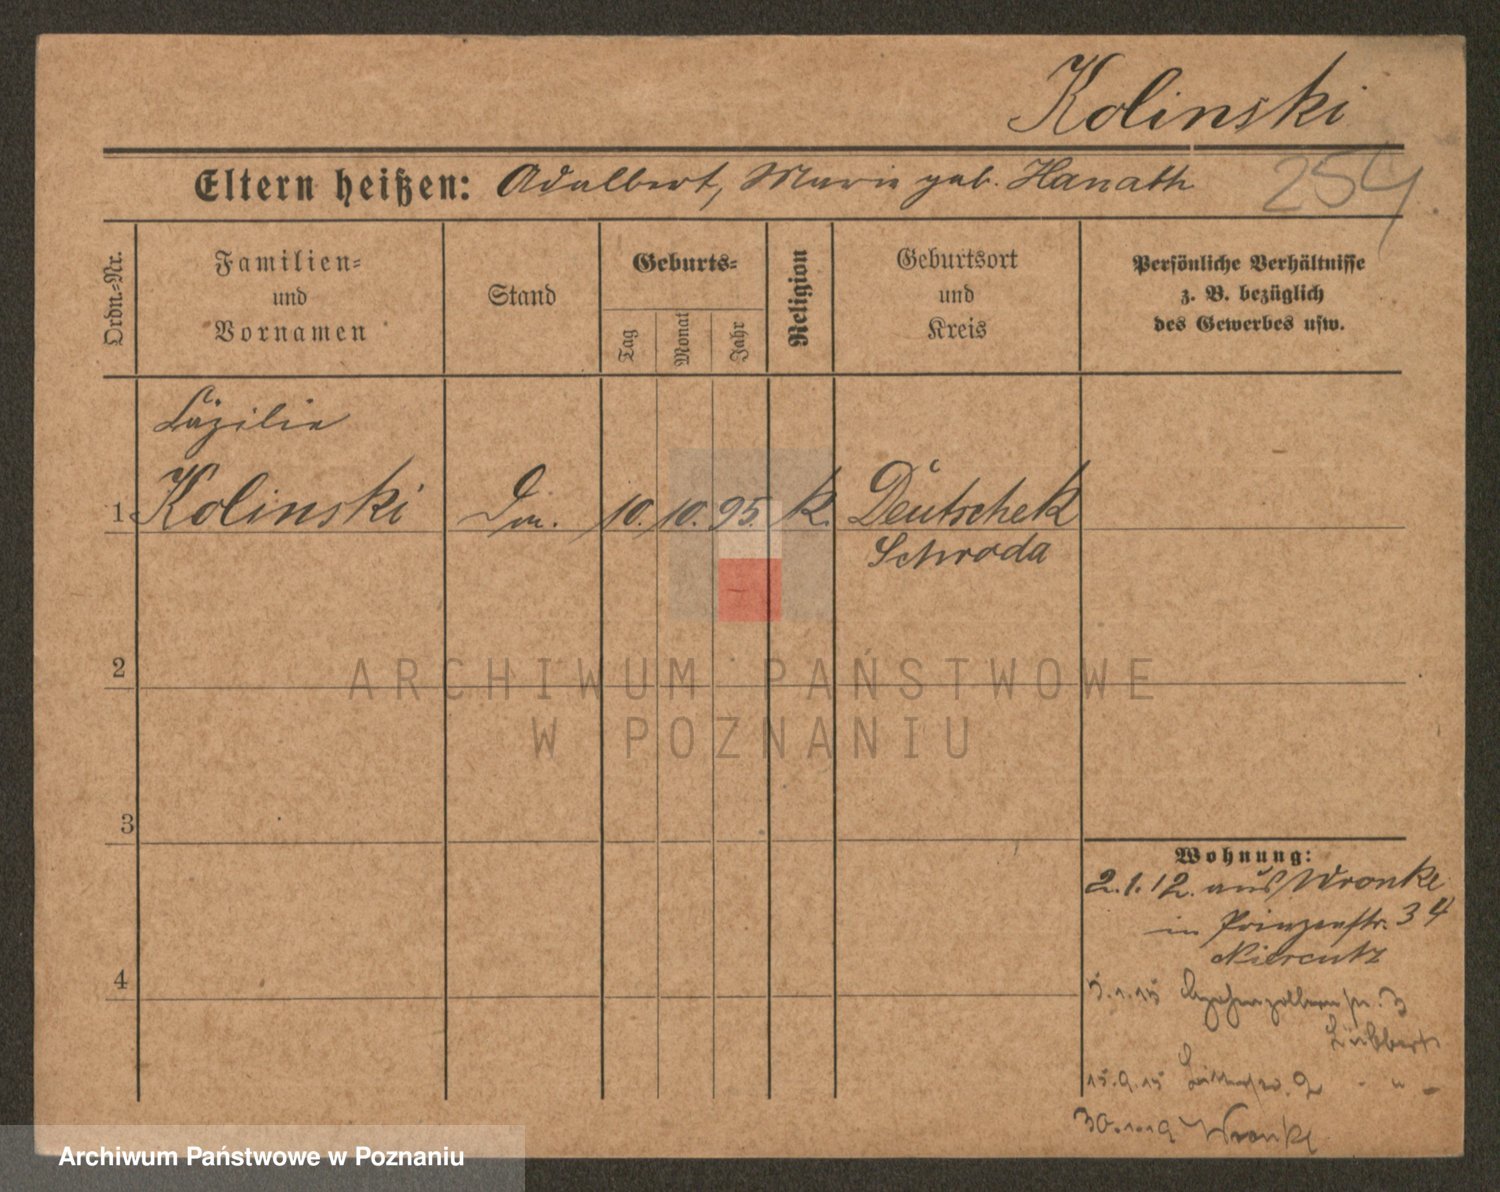 Kolinski
254
Eltern heißen: Adalbert, Marie geb. Hanath
Ordn.-Nr.
Familien- und Vornamen
Stand
Geburts-
Tag
Monat
Jahr
Religion
Geburtsort und Kreis
Persönliche Verhältnisse
z. B. bezüglich
des Gewerbes usw.
Cäzilie
1 Kolinski
10. 10. 95. k.
Deutscheck
Schroda
2
3
4
Wohnung:
2.1.12. aus Wronke
in Prinzenstr. 34
5.1.15 3
Lübbert
15.9.15 2 - " -
30.1.19 Wronke
ARCHIWUM PAŃSTWOWE
W POZNANIU
Archiwum Państwowe w Poznaniu